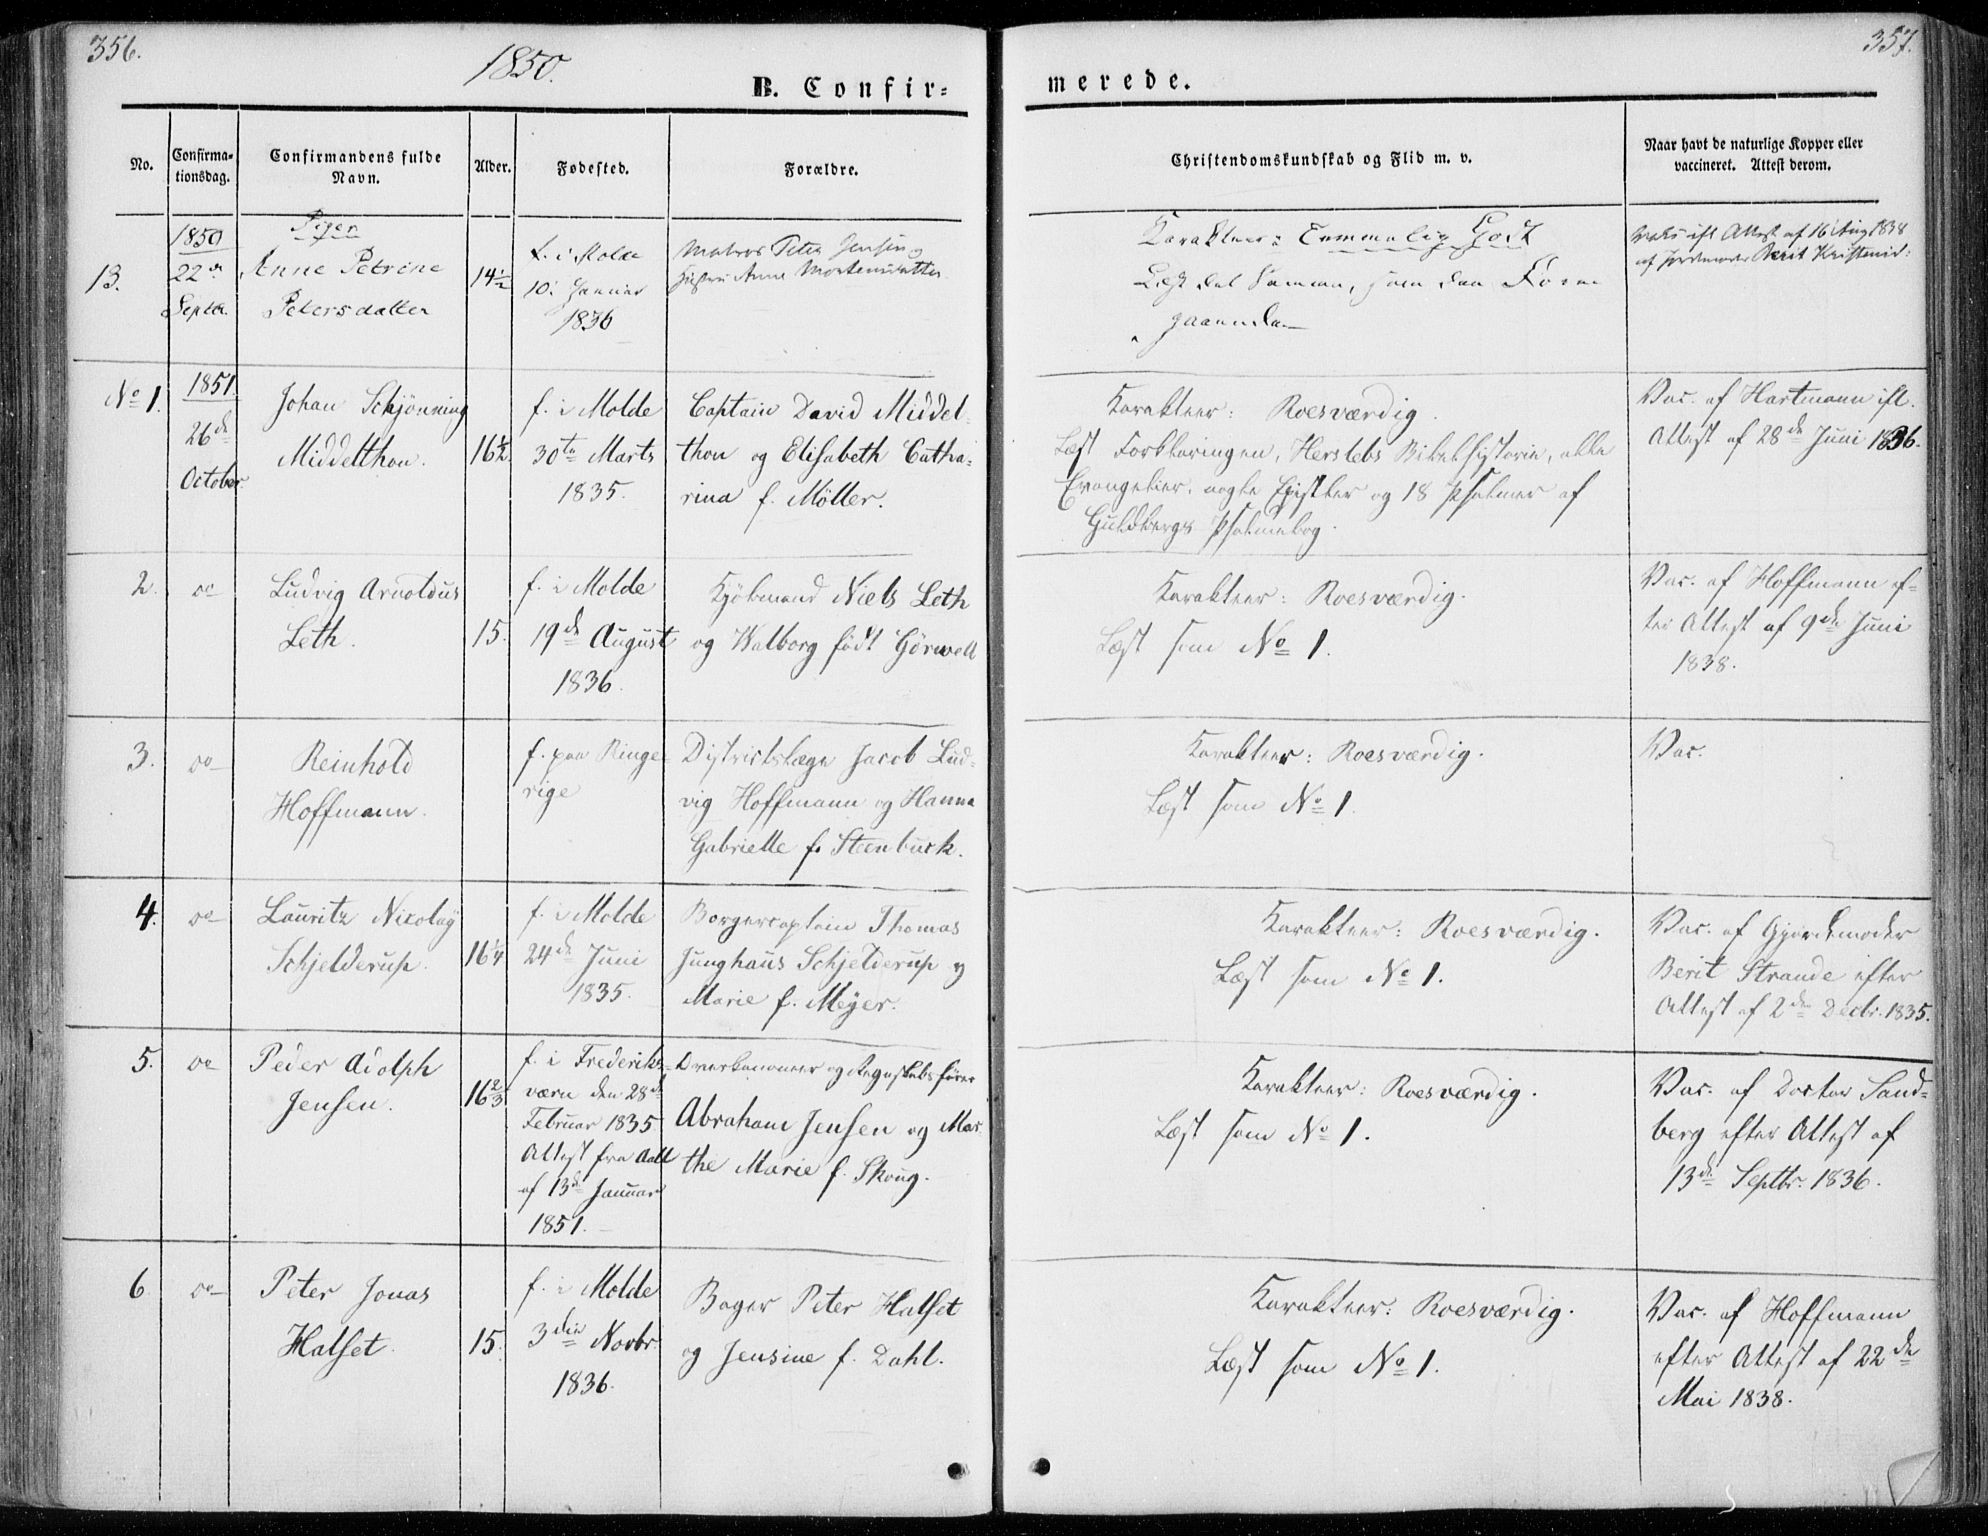 356.
1850.
B. Confir=
merede.
357.
No.
Confirma=
tionsdag.
Confirmandens fulde
Navn.
Alder.
Fødested.
Forældre.
Christendomskundskab og Flid m. v.
Naar havt de naturlige Kopper eller
vaccineret. Attest derom.
13.
1850
22de
Septbr.
Piger
Anne Petrine
Petersdatter
14½
f. i Molde
10. Januar
1836
Matros Peter Jensen og
Hustru Anne Mortensdatter
Karakteer: Temmelig Godt
Læst det Samme, som den Fore
gaaende
ifl Attest af 16 Aug 1838
af Jordemoder Berit Kristensd:
No 1.
1851
26de
October.
Johan Schjönning
Middelthon.
16½.
f. i Molde
30te Marts
1835.
Captain David Middel-
thon og Elisabeth Catha-
rina f. Möller.
Karakteer: Roesværdig.
Læst Forklaringen, Herslebs Bibelhistorie, alle
Evangelier, nogle Epistler og 18 Psalmer af
Guldbergs Psalmebog.
Vac. af Hartmann ifl.
Attest af 28de Juni 1836.
2.
do
Ludvig Arnoldus
Leth.
15.
f. i Molde
19de August
1836.
Kjöbmand Niels Leth
og Walborg født Görwell
Karakteer: Roesværdig.
Læst som No 1.
Vac. af Hoffmann ef-
ter Attest af 9de Juni
1838.
3.
do
Reinhold
Hoffmann.
f. paa Ringe-
rige
Districtslæge Jacob Lud-
vig Hoffmann og Hanna
Gabrielle f. Steenbuck.
Karakteer: Roesværdig.
Læst som No 1
Vac.
4.
do
Lauritz Nicolay
Schjelderup.
16¼
f. i Molde
24de Juni
1835.
Borgercaptain Thomas
Junghans Schjelderup og
Marie f. Meyer.
Karakteer: Roesværdig.
Læst som No 1.
Vac. af Gjordemoder
Berit Strande efter
Attest af 2den Decbr. 1835.
5.
do
Peder Adolph
Jensen.
16⅔
f. i Frederiks-
værn den 28de
Februar 1835
Attest fra
af 13de Januar
1851.
Overkanoneer og Regnskabsfører
Abraham Jensen og Mar
the Marie f. Skoug.
Karakteer: Roesværdig.
Læst som No 1.
Vac. af Doctor Sand-
berg efter Attest af
13de Septbr. 1836.
6.
do
Peter Jonas
Halset.
15.
f. i Molde
3die Novbr.
1836.
Bager Peter Halset
og Jensine f. Dahl.
Karakteer: Roesværdig.
Læst som No 1.
Vac. af Hoffmann
efter Attest af 22de
Mai 1838.